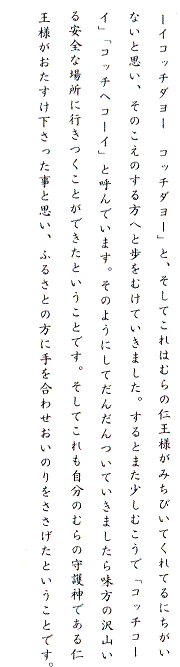 ーイコッチダヨー　コッチダヨー」と、そしてこれはむらの仁王様がみちびいてくれてるにちがい
ないと思い、そのこえのする方へと歩をむけていきました。するとまた少しむこうで「コッチコー
イ」「コッチヘコーイ」と呼んでいます。そのようにしてだんだんついていきましたら味方の沢山い
る安全な場所に行きつくことができたということです。そしてこれも自分のむらの守護神である仁
王様がおたすけ下さった事と思い、ふるさとの方に手を合わせおいのりをささげたということです。